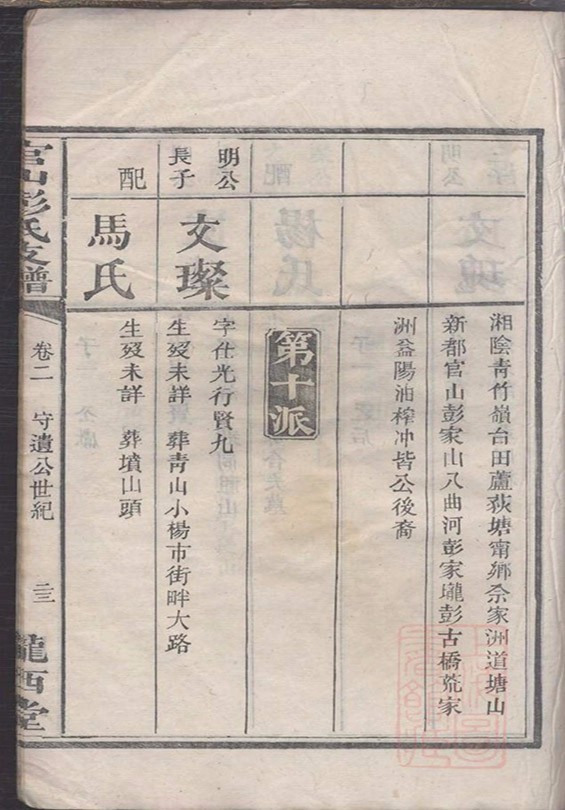 湘陰青竹嶺台田蘆荻塘甯鄉佘家洲道塘山
新都官山彭家山八曲河彭家壠彭古橋荒家
洲益陽油榨冲皆公後裔
第十派
明公
長子
文璨
字仕光行賢九
生歿未詳 葬青山小楊市街畔大路
配
馬氏
生歿未詳 葬墳山頭
官山彭氏支譜
卷二 守遺公世紀
二三
隴西堂